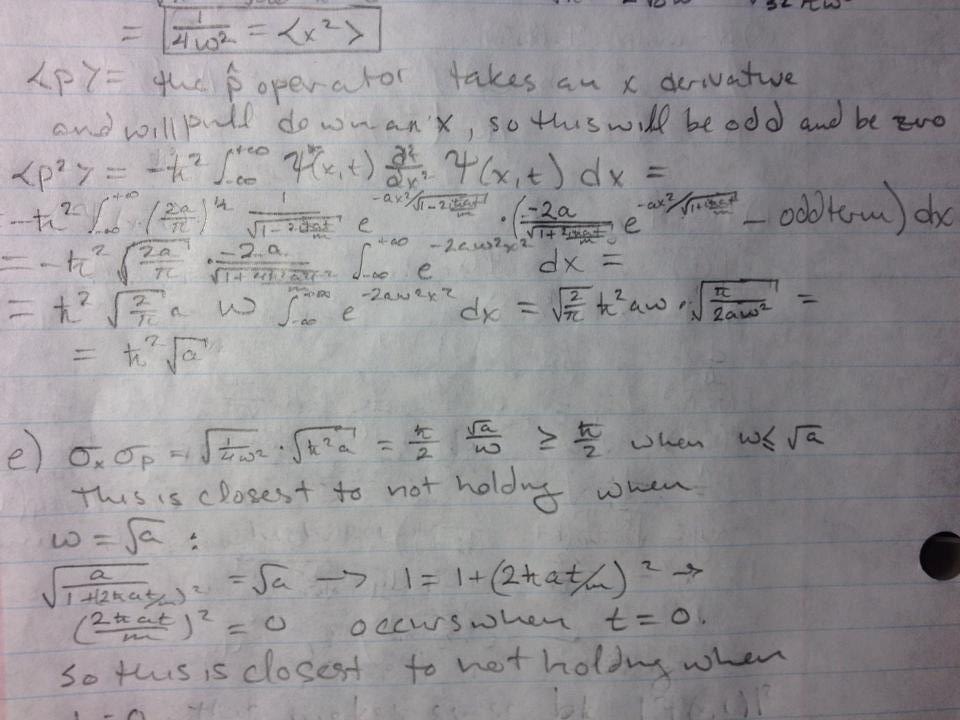 = 1/4w² = <x²>
<p> = the p̂ operator takes an x derivative
and will pull down an x, so this will be odd and be zero
<p²> = -ħ² ∫_{-∞}^{+∞} Ψ*(x,t) ∂²/dx² Ψ(x,t) dx =
-ħ² ∫_{-∞}^{+∞} (2a/π)^{1/4} 1/√(1-2iħat/m) e^{-ax²/√(1-2iħat/m)} · (-2a/√(1+2iħat/m) e^{-ax²/√(1+2iħat/m)} - odd term) dx
= -ħ² √(2a/π) · -2a/√ ∫_{-∞}^{+∞} e^{-2aw²x²} dx =
= ħ² √(2/π) a w ∫_{-∞}^{+∞} e^{-2aw²x²} dx = √(2/π) ħ² aw · √(π/2aw²) =
= ħ² √a
e) σₓ σₚ = √(1/4w²) · √(ħ²a) = ħ/2 √a/w ≥ ħ/2 when w ≤ √a
This is closest to not holdng when
w = √a :
√(a/1+(2ħat/m)²) = √a → 1 = 1+(2ħat/m)² →
(2ħat/m)² = 0 occurs when t = 0.
so this is closest to not holdng when